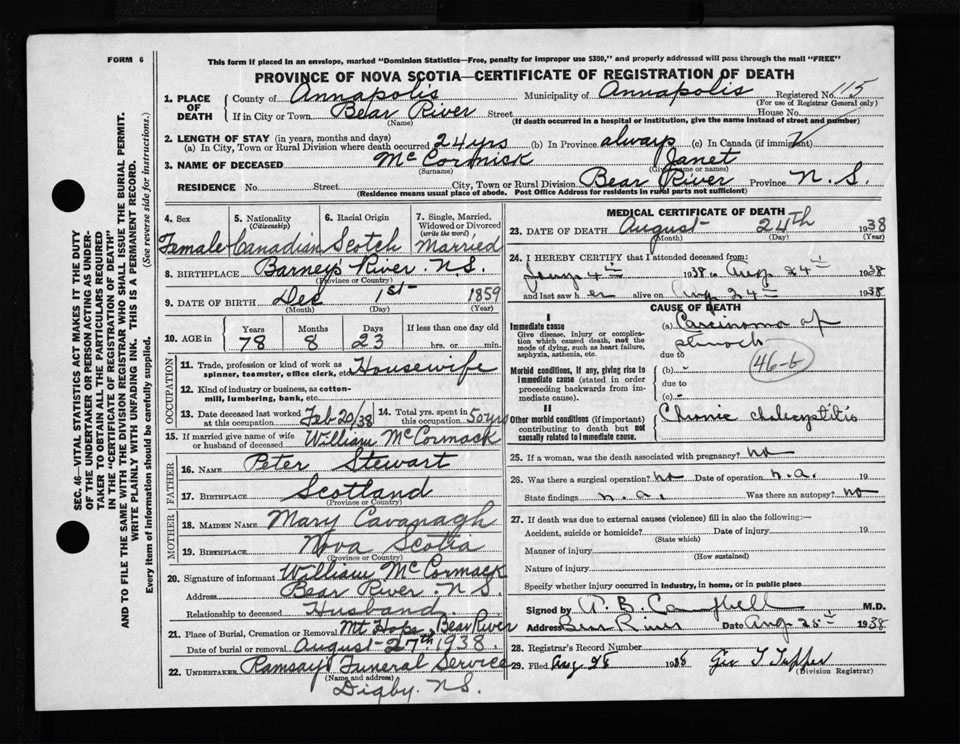 FORM 6
This form if placed in an envelope, marked "Dominion Statistics—Free, penalty for improper use $300," and properly addressed will pass through the mail "FREE"
PROVINCE OF NOVA SCOTIA—CERTIFICATE OF REGISTRATION OF DEATH
SEC. 46—VITAL STATISTICS ACT MAKES IT THE DUTY
OF THE UNDERTAKER OR PERSON ACTING AS UNDER-
TAKER TO OBTAIN ALL THE PARTICULARS REQUIRED
IN THE "CERTIFICATE OF REGISTRATION OF DEATH"
AND TO FILE THE SAME WITH THE DIVISION REGISTRAR WHO SHALL ISSUE THE BURIAL PERMIT.
WRITE PLAINLY WITH UNFADING INK. THIS IS A PERMANENT RECORD.
Every item of Information should be carefully supplied. (See reverse side for instructions.)
1. PLACE OF DEATH
County of Annapolis Municipality of Annapolis Registered No. 115
(For use of Registrar General only)
If in City or Town Bear River Street House No.
(Name) (If death occurred in a hospital or institution, give the name instead of street and number)
2. LENGTH OF STAY (in years, months and days)
(a) In City, Town or Rural Division where death occurred 24 yrs (b) In Province always (c) In Canada (if immigrant)
3. NAME OF DECEASED McCormick Janet
(Surname) (Given name or names)
RESIDENCE No. Street City, Town or Rural Division Bear River Province N.S.
(Residence means usual place of abode. Post Office Address for residents in rural parts not sufficient)
4. Sex Female
5. Nationality (Citizenship) Canadian
6. Racial Origin Scotch
7. Single, Married, Widowed or Divorced (write the word) Married
8. BIRTHPLACE Barney's River. N.S.
(Province or Country)
9. DATE OF BIRTH Dec 1st 1859
(Month) (Day) (Year)
10. AGE in Years 78 Months 8 Days 23 If less than one day old hrs. or min.
OCCUPATION
11. Trade, profession or kind of work as spinner, teamster, office clerk, etc. Housewife
12. Kind of industry or business, as cotton-mill, lumbering, bank, etc.
13. Date deceased last worked at this occupation Feb 20/38 14. Total yrs. spent in this occupation 50 yrs
15. If married give name of wife or husband of deceased William McCormack
FATHER
16. NAME Peter Stewart
17. BIRTHPLACE Scotland
(Province or Country)
MOTHER
18. MAIDEN NAME Mary Cavanagh
19. BIRTHPLACE Nova Scotia
(Province or Country)
20. Signature of informant William McCormack
Address Bear River. N.S.
Relationship to deceased Husband
21. Place of Burial, Cremation or Removal Mt Hope, Bear River
Date of burial or removal August 27th. 1938.
22. UNDERTAKER Ramsay's Funeral Service
(Name and address)
Digby. N.S.
MEDICAL CERTIFICATE OF DEATH
23. DATE OF DEATH August 24th 1938
(Month) (Day) (Year)
24. I HEREBY CERTIFY that I attended deceased from:
4th 1938 to Aug 24th 1938
and last saw her alive on Aug 24th 1938
CAUSE OF DEATH
I
Immediate cause
Give disease, injury or complication which caused death, not the mode of dying, such as heart failure, asphyxia, asthenia, etc.
(a) Carcinoma of stomach
due to
46-b
Morbid conditions, if any, giving rise to immediate cause (stated in order proceeding backwards from immediate cause).
(b) -
due to
(c) -
II
Other morbid conditions (if important) contributing to death but not causally related to immediate cause.
Chronic cholecystitis
25. If a woman, was the death associated with pregnancy? no
26. Was there a surgical operation? no Date of operation n.a. 19
State findings n.a. Was there an autopsy? no
27. If death was due to external causes (violence) fill in also the following:—
Accident, suicide or homicide? Date of injury 19
(State which)
Manner of injury
(How sustained)
Nature of injury
Specify whether injury occurred in industry, in home, or in public place
Signed by A. B. Campbell M.D.
Address Bear River Date Aug. 25th 1938
28. Registrar's Record Number
29. Filed Aug 25 1938 Tupper
(Division Registrar)